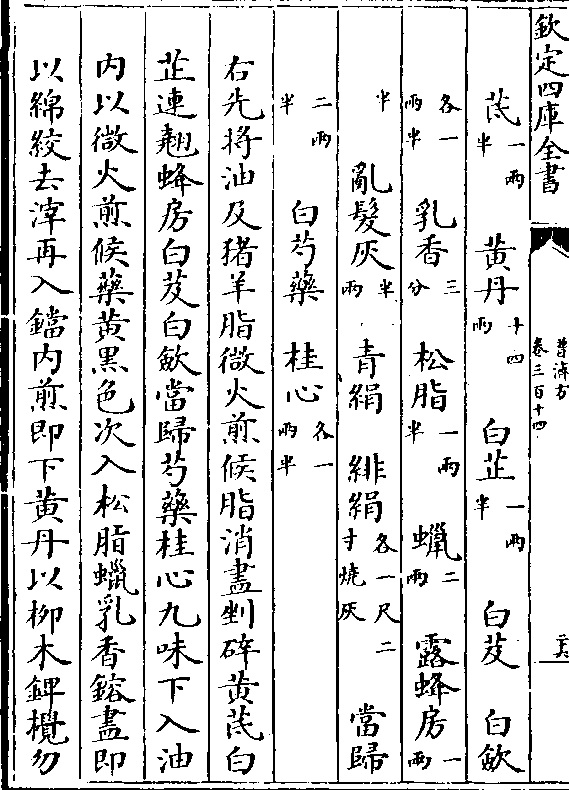 欽定四庫全書
普濟方
卷三百十四
芪一兩半 黃丹十四兩 白芷一兩半 白芨 白歛
各一兩半 乳香三分 松脂一兩半 蠟二兩 露蜂房一兩
半 亂髮灰半兩 青絹 緋絹各一尺二寸燒灰 當歸
二兩半 白芍藥 桂心各一兩半
右先將油及猪羊脂微火煎候脂消盡剉碎黃芪白
芷連翹蜂房白芨白歛當歸芍藥桂心九味下入油
内以微火煎候藥黃黑色次入松脂蠟乳香鎔盡即
以綿絞去滓再入鐺内煎即下黃丹以柳木錍攪勿